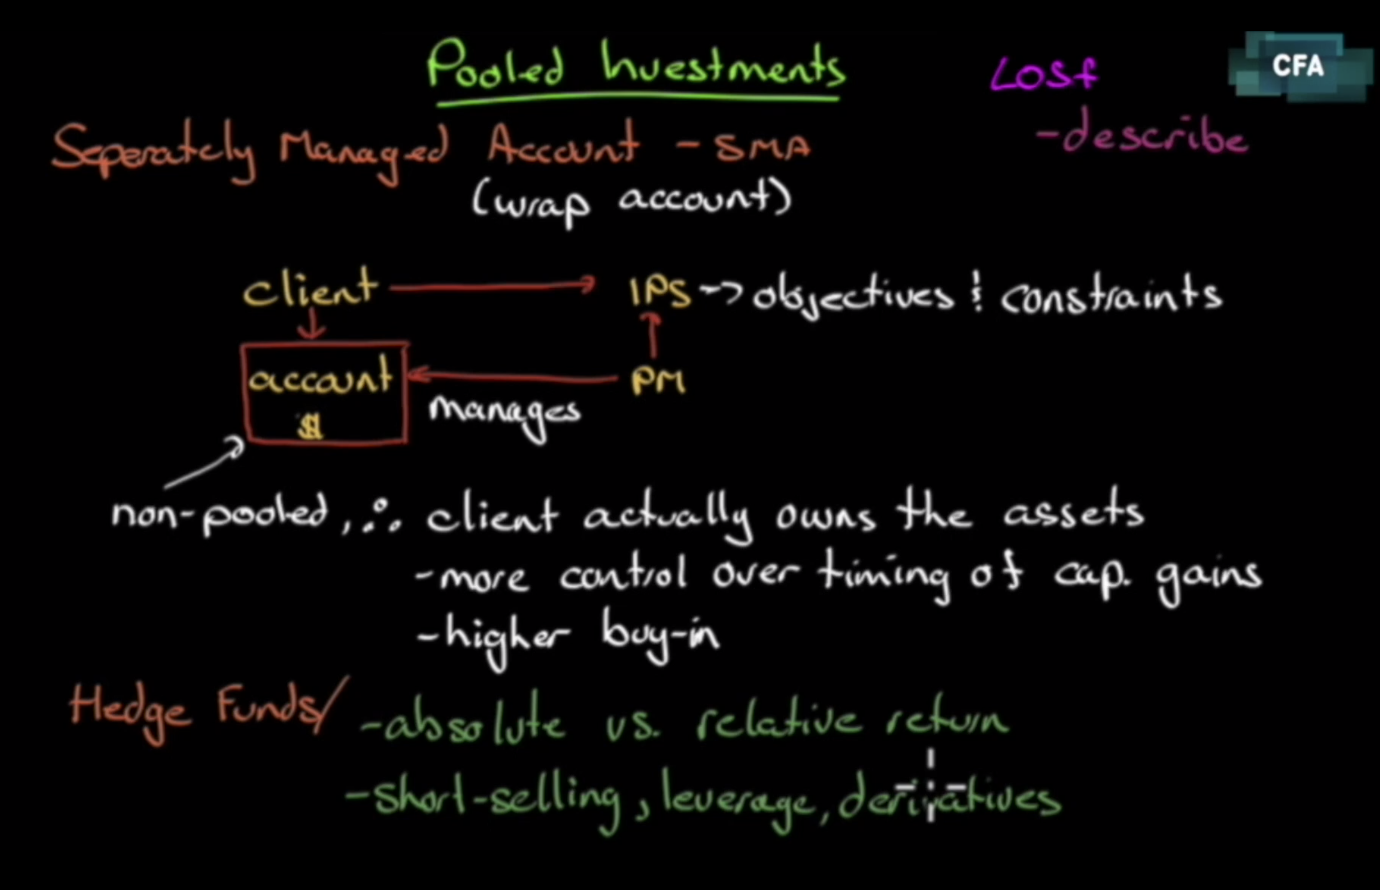 Pooled Investments
LOS f
CFA
- describe
Seperately Managed Account - SMA
(wrap account)
client → IPS -> objectives & constraints
account
$
PM
manages
non-pooled, ∴ client actually owns the assets
- more control over timing of cap. gains
- higher buy-in
Hedge Funds/ - absolute vs. relative return
- short-selling, leverage, derivatives